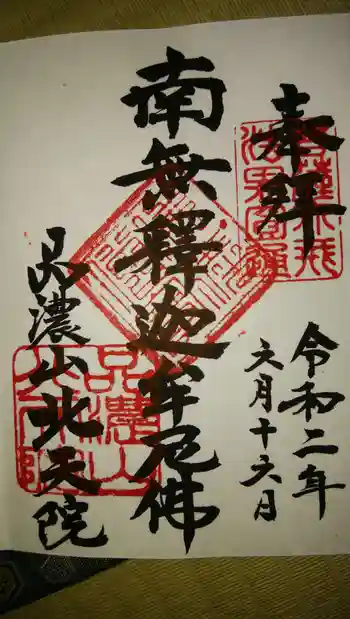 奉拜
令和二年
六月十六日
南無釋迦牟尼佛
品濃山北天院